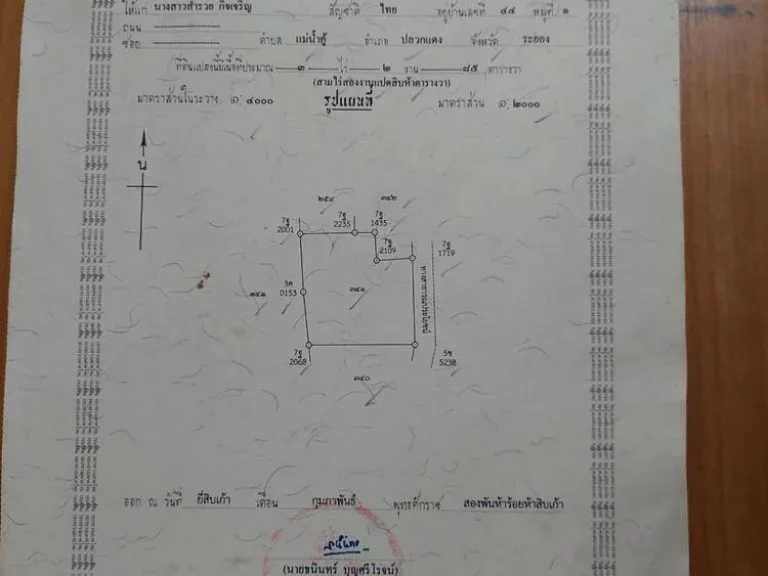 ให้แก่ นางสาวสำรวย กิจเจริญ สัญชาติ ไทย อยู่บ้านเลขที่ ๔๔ หมู่ที่ ๑
ถนน
ซอย ตำบล แม่น้ำคู้ อำเภอ ปลวกแดง จังหวัด ระยอง
ที่ดินแปลงนี้มีเนื้อที่ประมาณ ๓ ไร่ ๒ งาน ๘๕ ตารางวา
(สามไร่สองงานแปดสิบห้าตารางวา)
มาตราส่วนในระวาง ๑:๔๐๐๐ รูปแผนที่ มาตราส่วน ๑:๒๐๐๐
น
๒๕๙ ๓๔๒
7ฐ 2001
7ฐ 2235
7ฐ 1435
7ฐ 2109
7ฐ 1719
5ค 0153
๓๔๑
ทางสาธารณประโยชน์
7ฐ 2068
5ซ 5238
๓๔๐
ออก ณ วันที่ ยี่สิบเก้า เดือน กุมภาพันธ์ พุทธศักราช สองพันห้าร้อยห้าสิบเก้า
(นายธนินทร์ บุญศรีโรจน์)